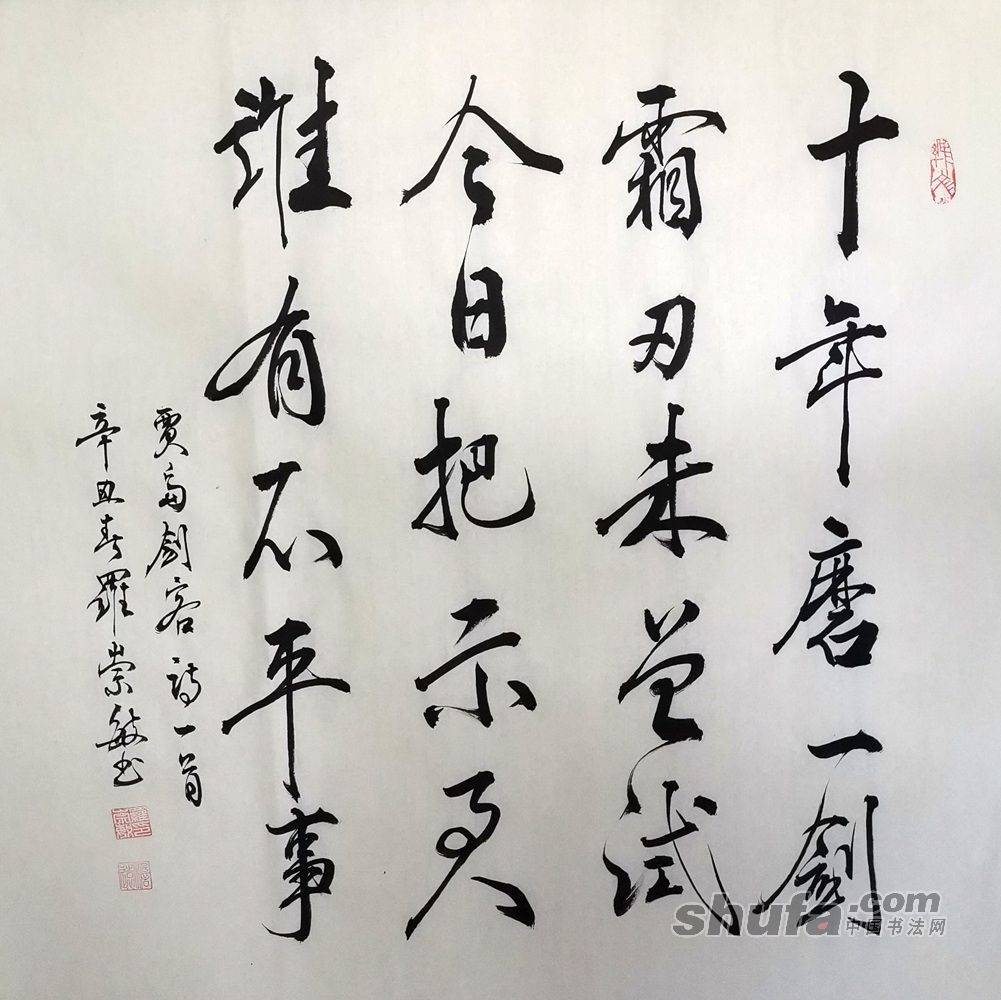 十年磨一劍
霜刃未曾試
今日把示君
誰有不平事
賈島劍客詩一首
辛丑春羅崇敏书
shufa.com
中国书法网